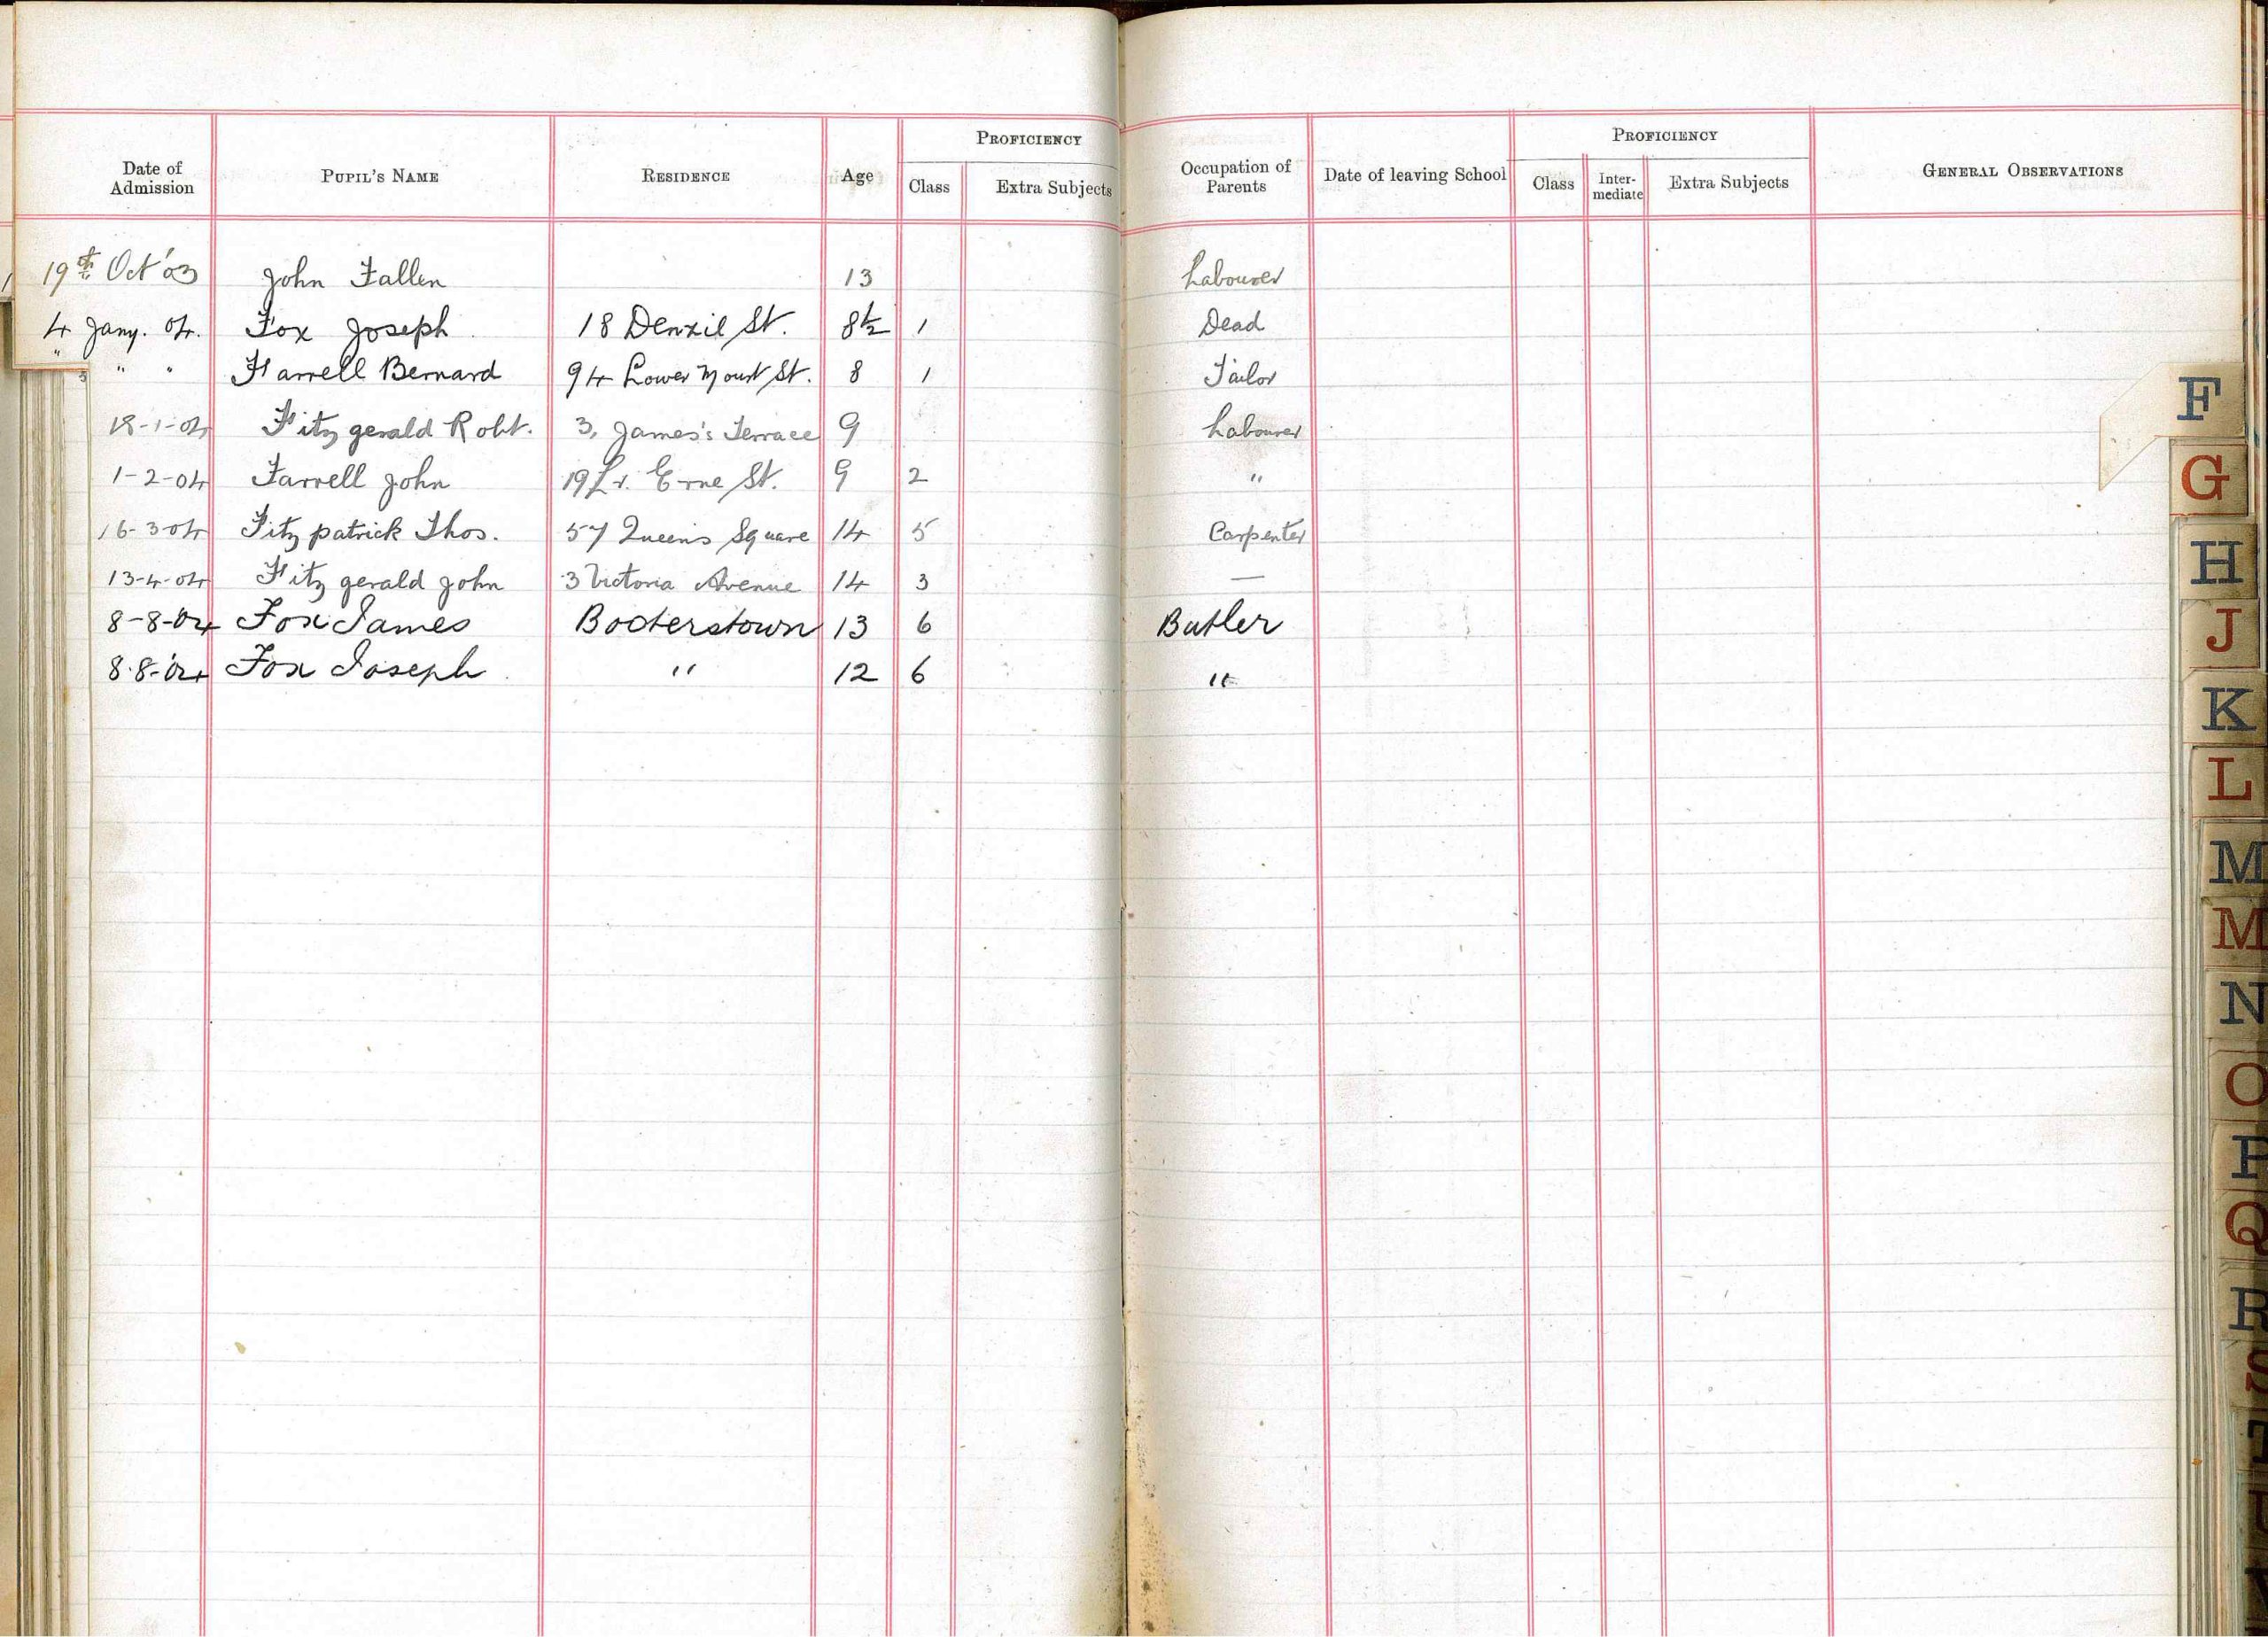 PROFICIENCY PROFICIENCY
Date of Admission PUPIL'S NAME RESIDENCE Age Class Extra Subjects Occupation of Parents Date of leaving School Class Inter-mediate Extra Subjects GENERAL OBSERVATIONS
19th Oct '03 John Fallen 13 Labourer
4 Jany. 04. Fox Joseph 18 Denzil St. 8½ 1 Dead
" " " Farrell Bernard 94 Lower Mount St. 8 1 Tailor
18-1-04 Fitzgerald Robt. 3, James's Terrace 9 Labourer
1-2-04 Farrell John 19 Lr. Erne St. 9 2 "
16-3-04 Fitzpatrick Thos. 57 Queen's Square 14 5 Carpenter
13-4-04 Fitzgerald John 3 Victoria Avenue 14 3 —
8-8-'04 Fox James Booterstown 13 6 Butler
8-8-'04 Fox Joseph " 12 6 "
F
G
H
J
K
L
M
M
N
O
P
Q
R
S
T